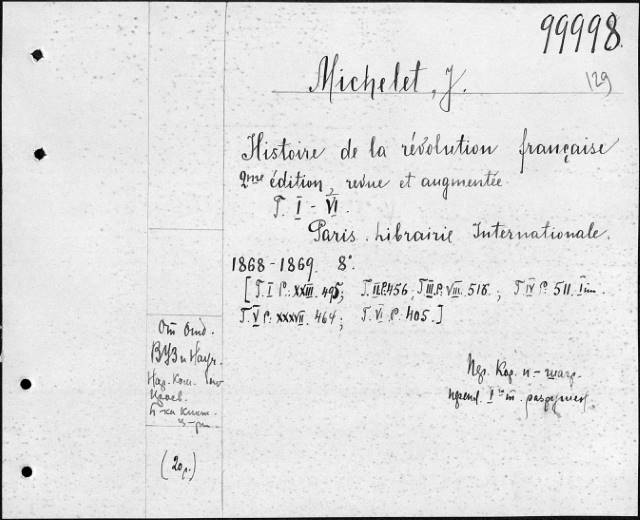 99998.
129
Michelet, J.
Histoire de la révolution française
2me édition, revue et augmentée.
T. I - VI.
Paris. Librairie Internationale.
1868-1869. 8°.
[T. I P. XXIII. 495; T. II P. 456; T. III. P. VIII. 516; T. IV P. 511.
T. V P. XXXVII. 464; T. VI. P. 405.]
От Отд.
ВУЗ и Науч.
Нар. Ком.
Просв.
(20р.)
Пер. Кор. и
I